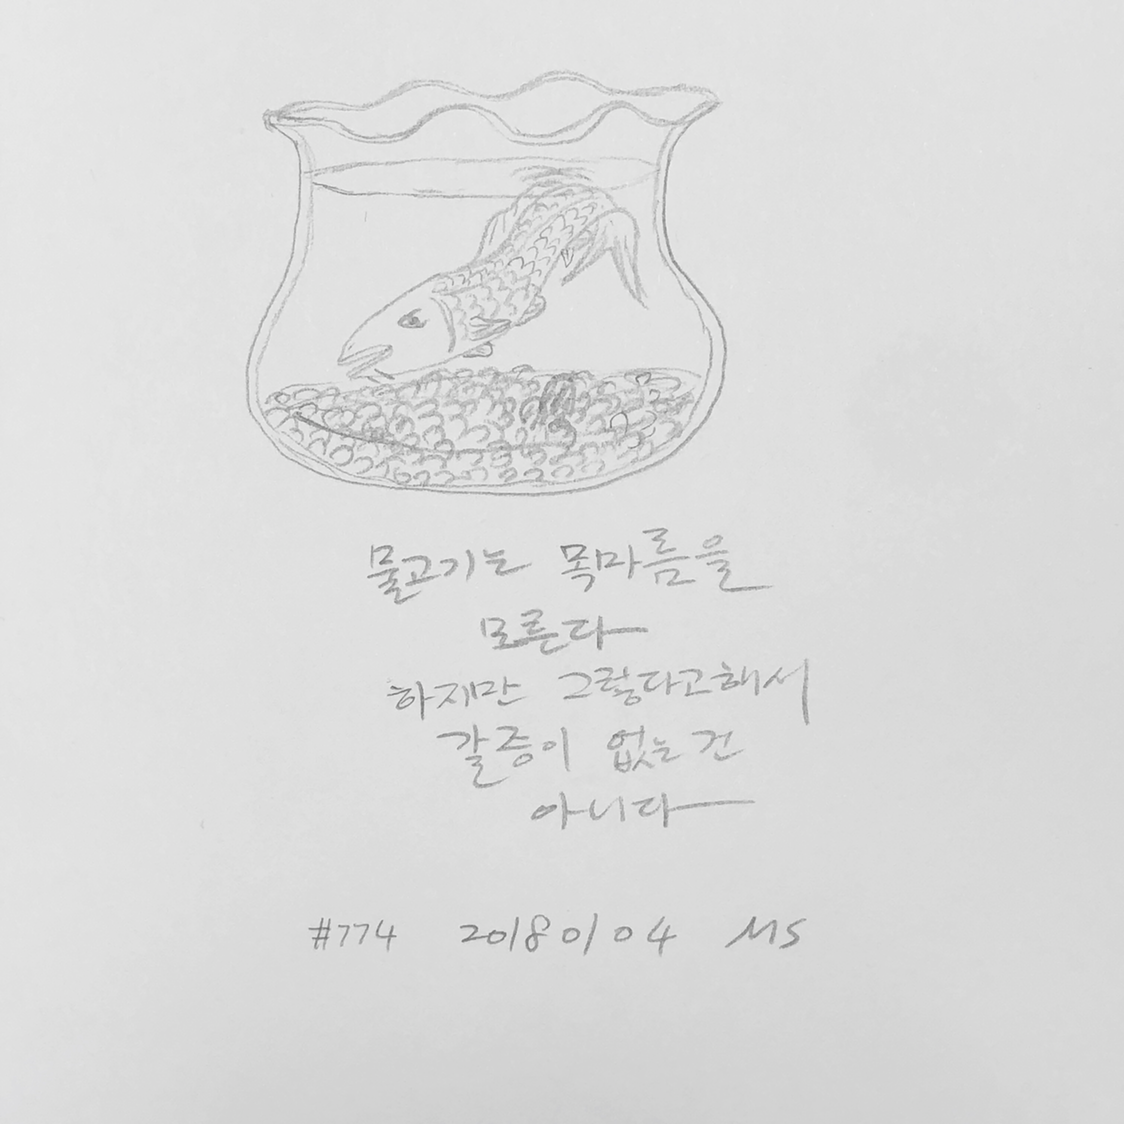 물고기는 목마름을
모른다
하지만 그렇다고해서
갈증이 없는건
아니다
#774 20180104 MS